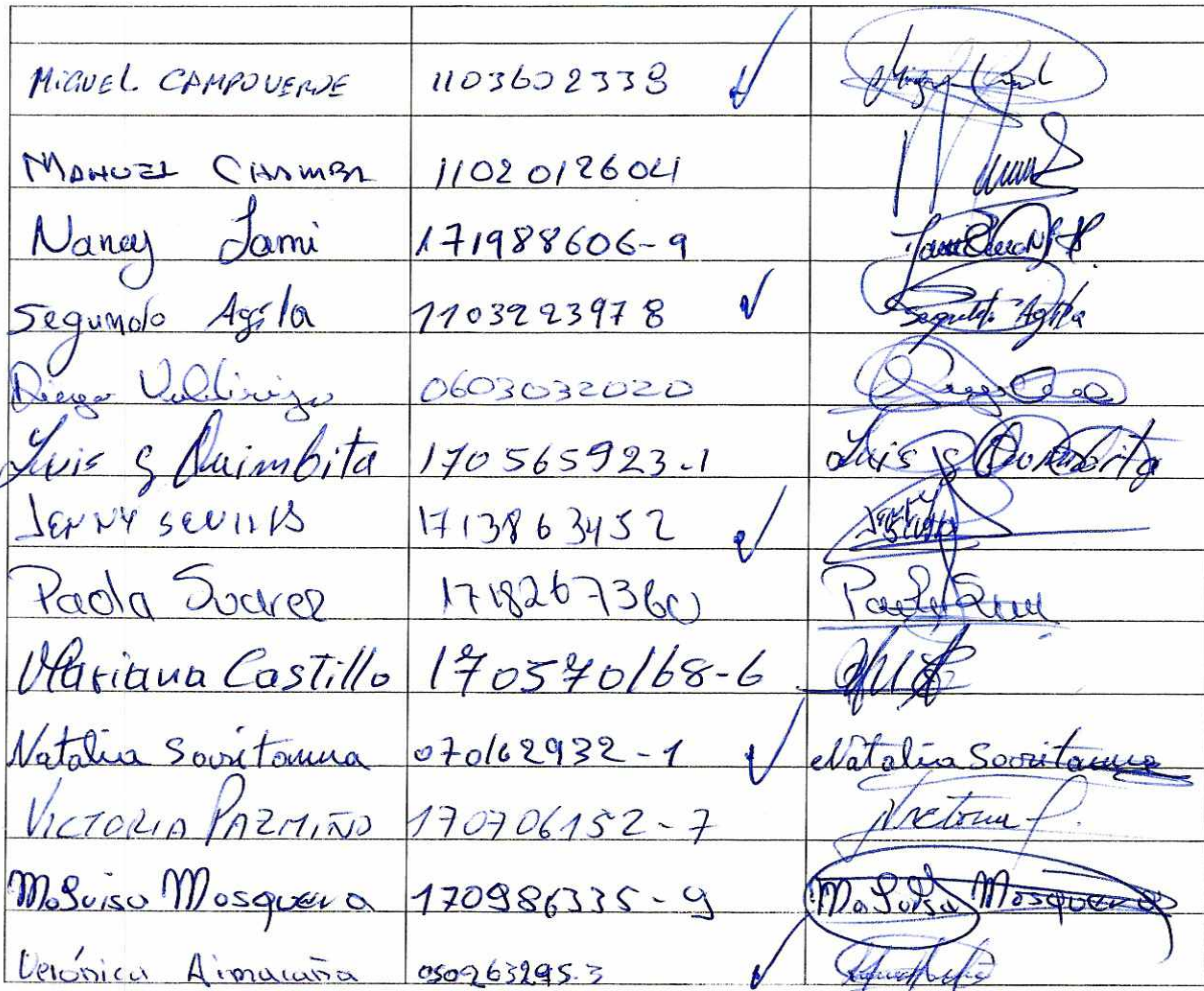 MIGUEL CAMPOVERDE 1103602339 ✓
MANUEL CHAMBA 1102012604
Nancy Jami 171988606-9
Segundo Agila 1103223978 ✓ Segundo Agila
Diego 0603032020
Luis G Quimbita 170565923-1 Luis G Quimbita
JENNY SEVILLA 1713863452 ✓
Paola Suarez 1718267360
Mariana Castillo 170570168-6
Natalia 070162932-1 ✓ Natalia
VICTORIA PAZMIÑO 170706152-7 Victoria P.
Ma Luisa Mosquera 170986335-9 Ma Luisa Mosquera
Verónica Aimacaña 050263295.3 ✓